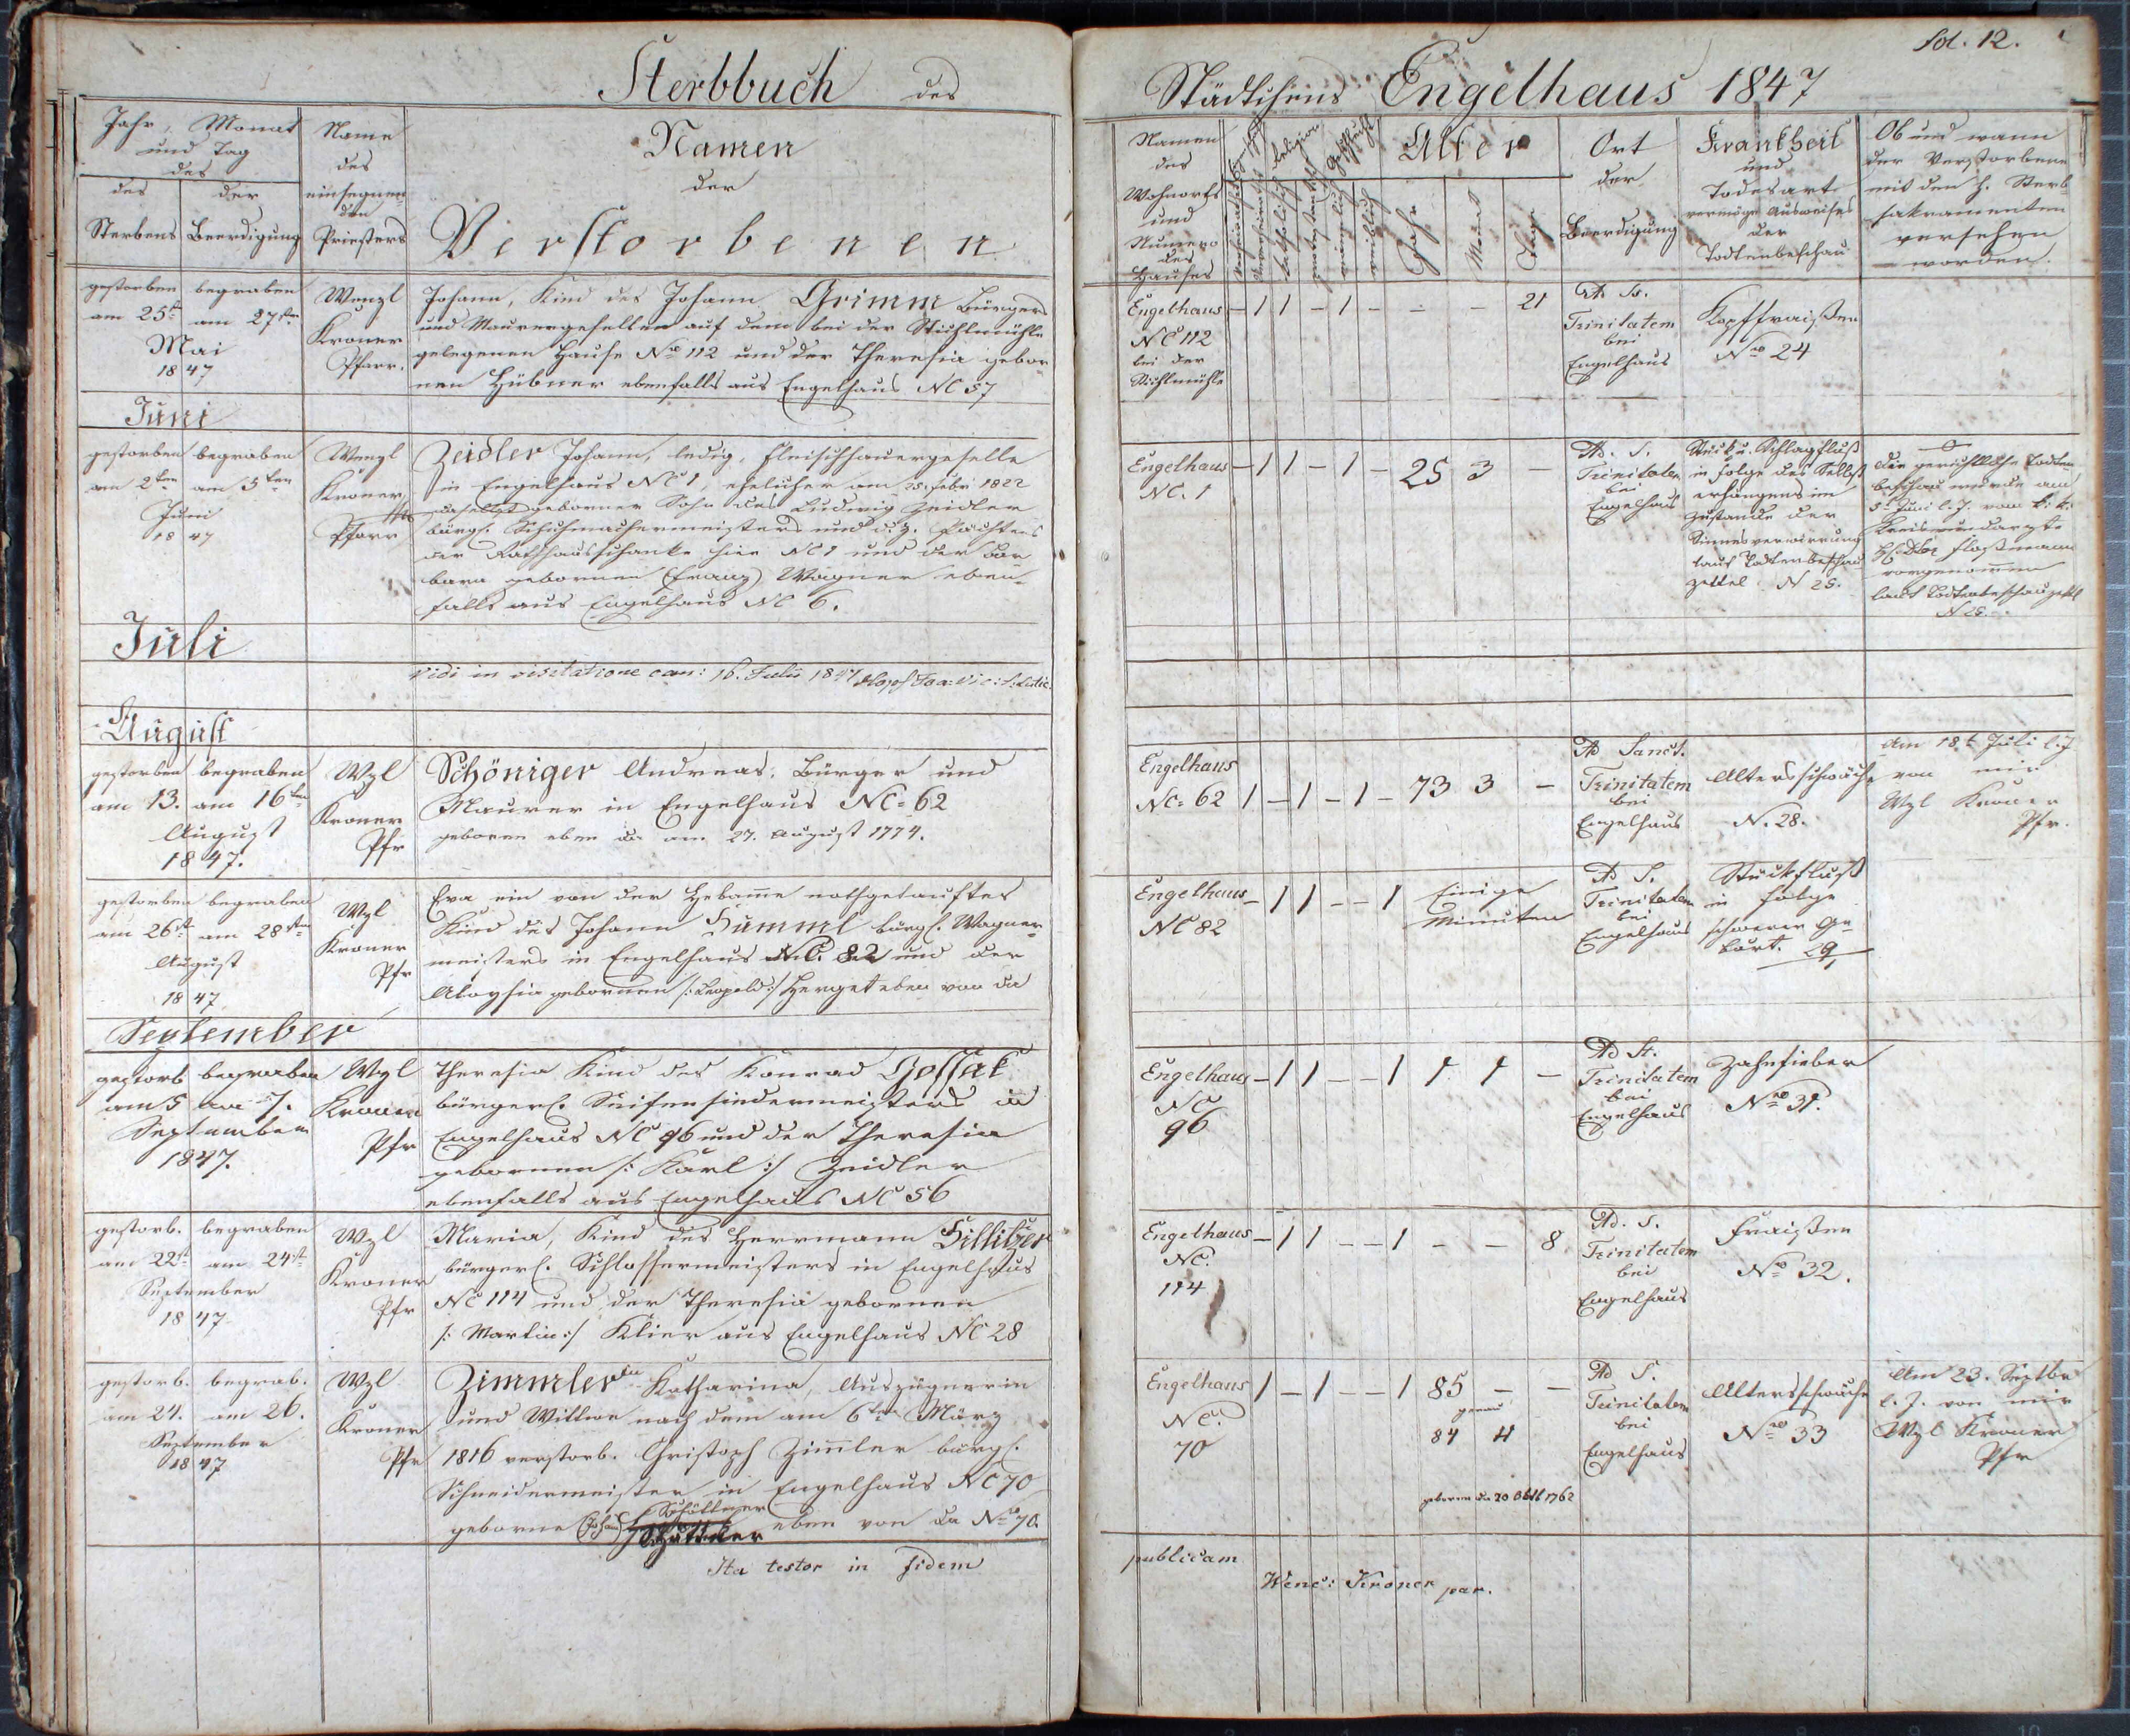 Sterbbuch des
Städtchens Engelhaus 1847
fol. 12.
Jahr, Monat
und Tag
des
des
Sterbens
der
Beerdigung
Name
des
einsegnen-
den
Priesters
Namen
der
Verstorbenen
Namen
des
Wohnorts
und
Numero
des
Hauses
Religion
Geschlecht
katholisch
männlich
weiblich
Alter
Jahr
Monat
Tage
Ort
der
Beerdigung
Krankheit
und
Todesart
vermöge Ausweises
der
Todtenbeschau
Ob und wann
der Verstorbene
mit den h. Sterb-
sakramenten
versehen
worden.
gestorben begraben
am 25t. am 27ten
Mai
1847
Wenzl
Kroner
Pfarr.
Johann, Kind des Johann Grimm Bürgers
und Maurergesellen auf dem bei der Stichlmühle
gelegenen Hause Nro 112 und der Theresia gebor
nen Hübner ebenfalls aus Engelhaus NC 57
Engelhaus
NC 112
bei der
Stichlmühle
– 1 1 – 1 – – – 21
Trinitatem
bei
Engelhaus
Kopffraißen
Nro 24
Juni
gestorben begraben
am 2ten am 5ten
Juni
1847
Wenzl
Kroner,
Pfarr
Zeidler Johann, ledig, Fleischhauergeselle
in Engelhaus NC 1, ehelicher am 25. Febr 1822
daselbst geborner Sohn des Ludwig Zeidler
bürgl. Schuhmachermeisters und d. z. Pächters
der Rathhausschanke hier NC 1 und der Bar
bara gebornen (Franz) Wagner eben-
falls aus Engelhaus NC 6.
Engelhaus
NC. 1
– 1 1 – 1 – 25 3 –
Ad. S.
Trinitatem
bei
Engelhaus
Stick u. Schlagfluß
in Folge des Selbst
erhängens im
Zustande der
Sinnesverwirrung
laut Todtenbeschau
zettel N 25.
Die gerichtliche Todten
beschau wurde am
5t Juni l. J. vom k. k.
Kreiswundarzte
H. Floßmann
vorgenommen
laut Todtenbeschauzettl
N 25.
Juli
Vidi in visitatione can: 16. Julii 1847
August
gestorben begraben
am 13. am 16ten
August
1847.
Wzl
Kroner
Pfr
Schöniger Andreas, Bürger und
Maurer in Engelhaus NC: 62
geboren eben da am 27. August 1774.
Engelhaus
NC: 62
1 – 1 – 1 – 73 3 –
Ad Sanct.
Trinitatem
bei
Engelhaus
Altersschwäche
N. 28.
Am 18t Juli l. J.
von mir
Wzl Kroner
Pfr.
gestorben begraben
am 26t am 28ten
August
1847
Wzl
Kroner
Pfr
Eva ein von der Hebame nothgetauftes
Kind des Johann Hümml bürgl. Wagner-
meisters in Engelhaus NC. 82 und der
Aloysia gebornen /: Leopold :/ Herget eben von da
Engelhaus
NC 82
– 1 1 – – 1 Einige
Minuten
Ad S.
Trinitatem
bei
Engelhaus
Stickfluß
in Folge
schwerer Ge
burt. 29
September
gestorb begraben
am 5 am 7.
September
1847.
Wzl
Kroner
Pfr
Theresia Kind des Konrad Gossak
bürgerl. Seifensiedermeisters in
Engelhaus NC 96 und der Theresia
gebornen /: Karl :/ Zeidler
ebenfalls aus Engelhaus NC 56
Engelhaus
NC
96
– 1 1 – – 1 1 1 –
Ad St.
Trinitatem
bei
Engelhaus
Zahnfieber
Nro 31.
gestorb. begraben
am 22t am 24t
September
1847
Wzl
Kroner
Pfr
Maria, Kind des Herrmann Hillitzer
bürgerl. Schlossermeisters in Engelhaus
NC 114 und der Theresia gebornen
/: Martin :/ Klier aus Engelhaus NC 28
Engelhaus
NC.
114
– 1 1 – – 1 – – 8
Ad. S.
Trinitatem
bei
Engelhaus
Fraißen
Nro 32.
gestorb. begrab.
am 24. am 26.
September
1847
Wzl
Kroner
Pfr
Zimmlerin Katharina, Auszügnerin
und Wittwe nach dem am 6ten März
1816 verstorb. Christoph Zimler bürgl.
Schneidermeister in Engelhaus NC 70
geborne (Johan) Schöttner eben von da Nro 70.
Engelhaus
NC.
70
1 – 1 – – 1 85 – –
genau
84 11
geboren da 20 Okt 1762
Ad S.
Trinitatem
bei
Engelhaus
Altersschwäche
Nro 33
Am 23. Septbr
l. J. von mir
Wzl Kroner
Pfr
Ita testor in fidem
publicam
Wenc: Kroner par.